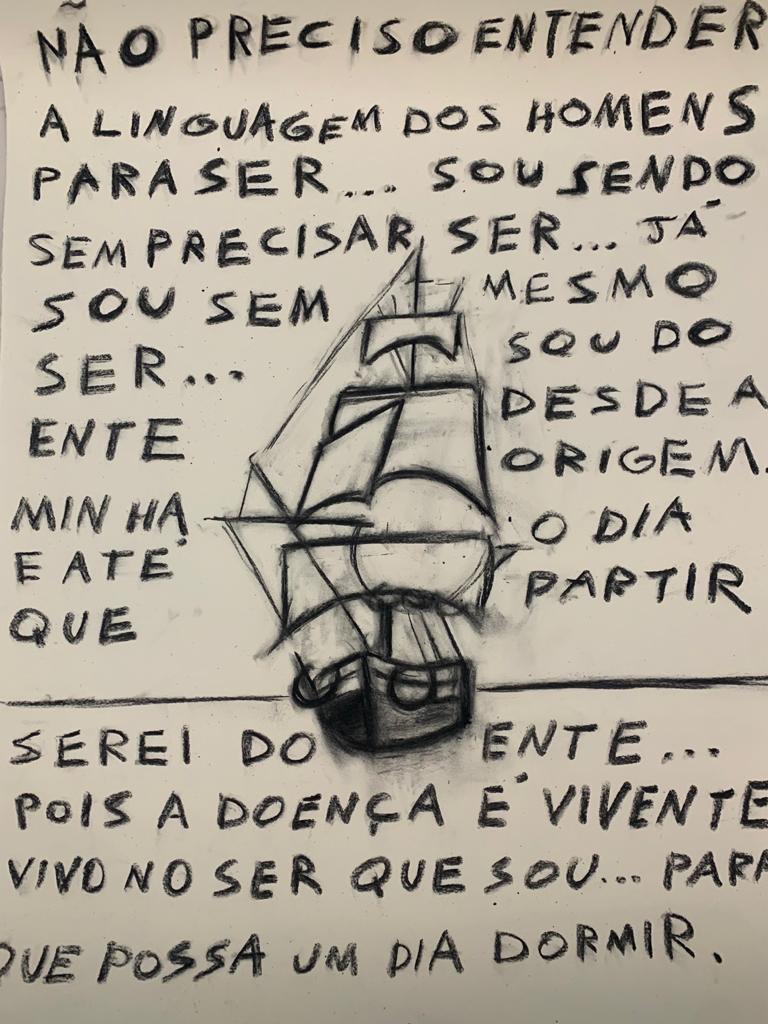 NÃO PRECISO ENTENDER
A LINGUAGEM DOS HOMENS
PARA SER... SOU SENDO
SEM PRECISAR SER... JÁ
SOU SEM MESMO
SER... SOU DO
ENTE DESDE A
MINHA ORIGEM.
E ATÉ O DIA
QUE PARTIR
SEREI DO ENTE...
POIS A DOENÇA É VIVENTE
VIVO NO SER QUE SOU... PARA
QUE POSSA UM DIA DORMIR.